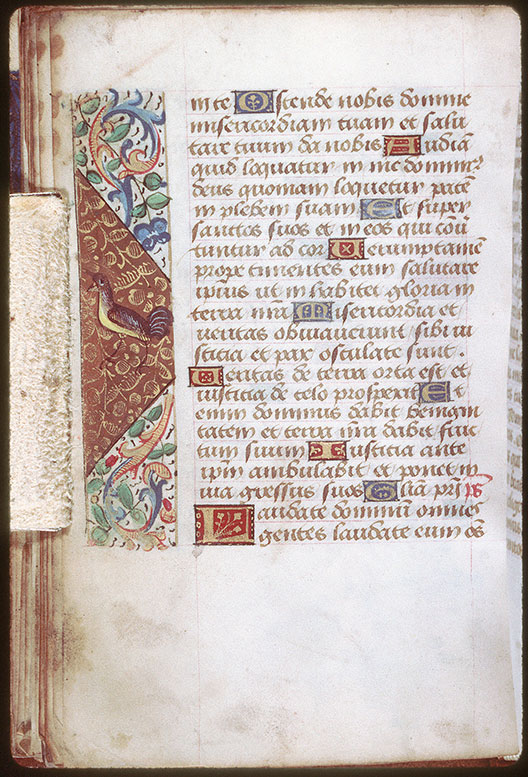 in te Ostende nobis domine
misericordiam tuam et salu
tare tuum da nobis Audiā
quid loquatur in me domin⁹
deus quoniam loquetur pacē
in plebem suam Et super
sanctos suos et in eos qui cōū
tuntur ad cor Verumptamē
prope timentes eum salutare
ipius ut in habitet gloria in
terra nrā Misericordia et
veritas obviaverunt sibi iu
sticia et pax osculate sunt .
Veritas de terra orta est et
iusticia de celo prospexit Et
enim dominus dabit benigni
tatem et terra nrā dabit fruc
tum suum Iusticia ante
ipm ambulabit et ponet in
via gressus suos Gliā pri ps
Laudate dominū omnes
gentes laudate eum oēs